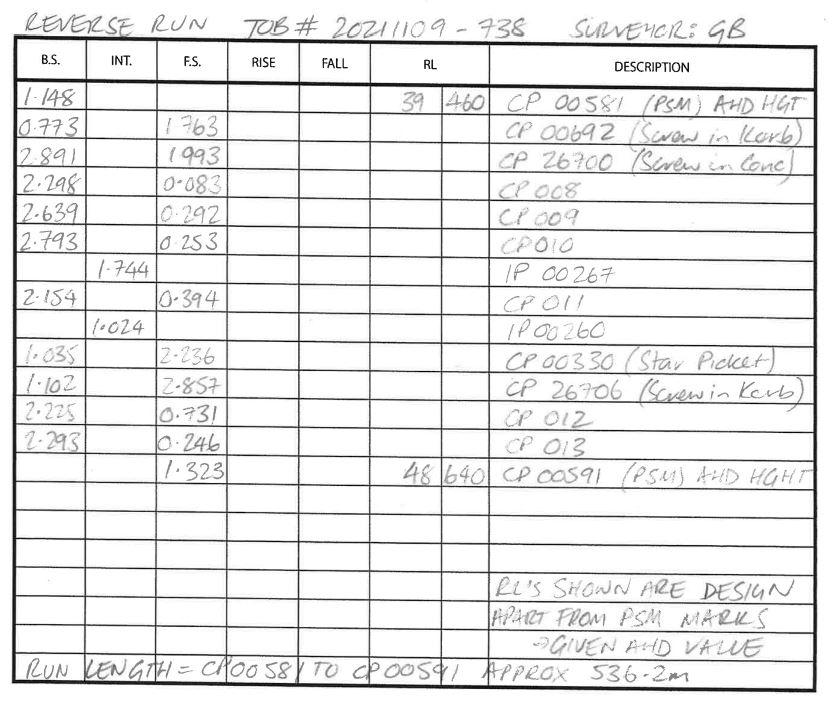 REVERSE RUN JOB # 20211109 - 738 SURVEYOR: GB
B.S. INT. F.S. RISE FALL RL DESCRIPTION
1.148 39 460 CP 00581 (PSM) AHD HGT
0.773 1.763 CP 00692 (Screw in Kerb)
2.891 1.993 CP 26700 (Screw in Conc)
2.298 0.083 CP 008
2.639 0.292 CP 009
2.793 0.253 CP 010
1.744 IP 00267
2.154 0.394 CP 011
1.024 IP 00260
1.035 2.236 CP 00330 (Star Picket)
1.102 2.857 CP 26706 (Screw in Kerb)
2.225 0.731 CP 012
2.293 0.246 CP 013
1.323 48 640 CP 00591 (PSM) AHD HGHT
RL'S SHOWN ARE DESIGN
APART FROM PSM MARKS
→ GIVEN AHD VALUE
RUN LENGTH = CP00581 TO CP00591 APPROX 536.2m